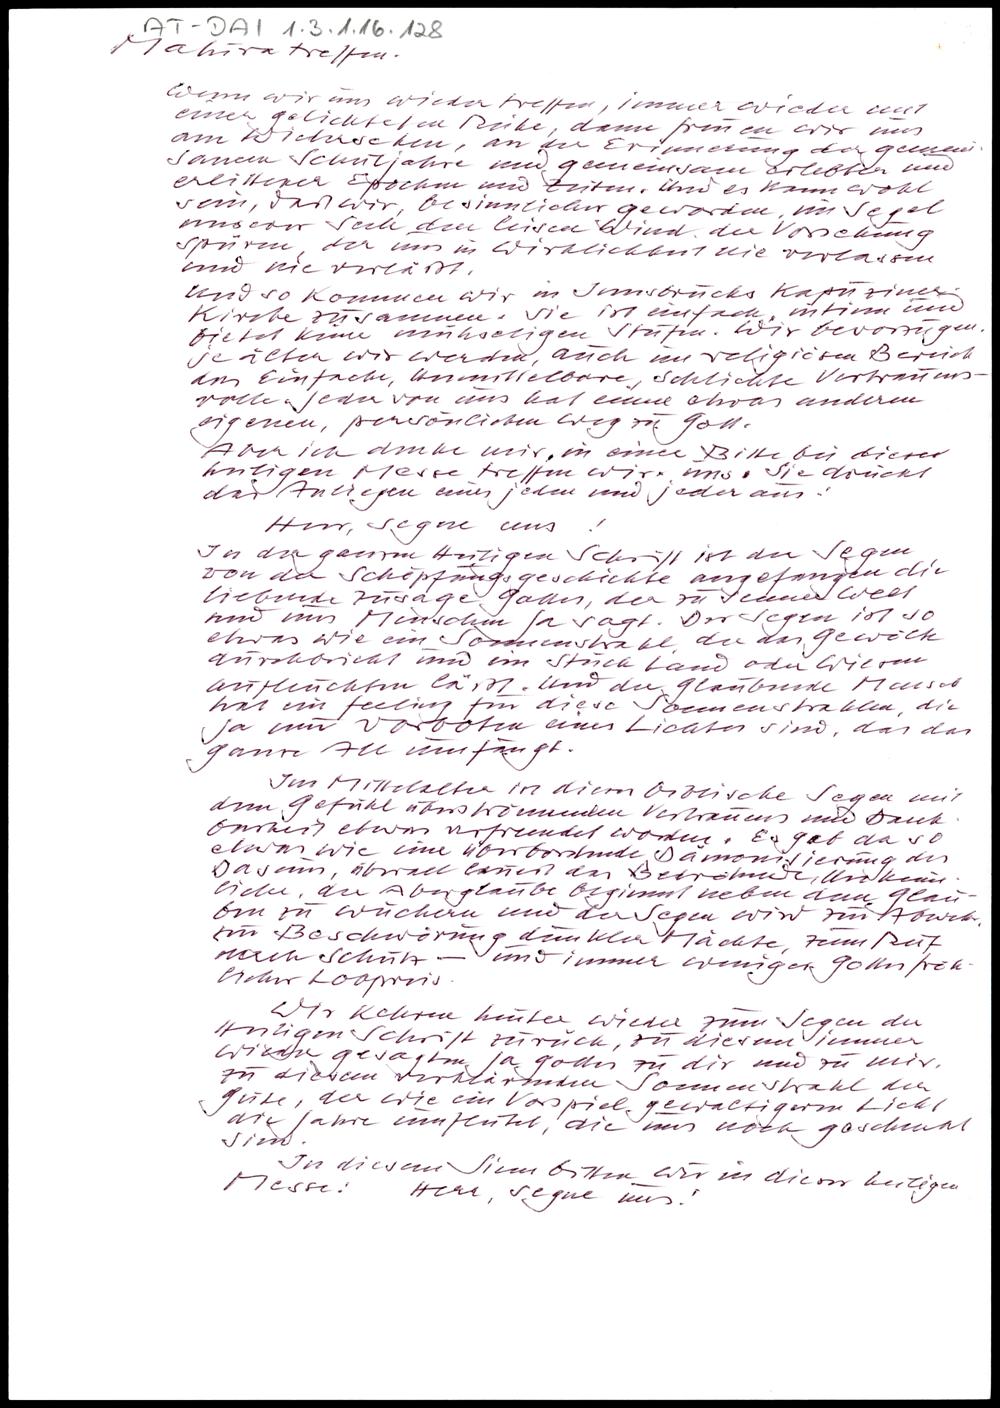 AT-DAI 1.3.1.16.128
Maturatreffen.
Wenn wir uns wieder treffen, immer wieder mit
einer gelichteten Reihe, dann freuen wir uns
am Wiedersehen, an der Erinnerung der gemein-
samen Schuljahre und gemeinsam erlebter und
erlittener Epochen und Zeiten. Und es kann wohl
sein, daß wir, besinnlicher geworden, im Segel
unserer Seele den leisen Wind der Vorsehung
spüren, der uns in Wirklichkeit nie verlassen
und nie verläßt.
Und so kommen wir in Innsbrucks Kapuziner-
kirche zusammen. Sie ist einfach, intim und
bietet keine mühseligen Stufen. Wir bevorzugen,
je älter wir werden, auch im religiösen Bereich
das Einfache, Unmittelbare, schlichte Vertrauens-
volle. Jeder von uns hat einen etwas anderen
eigenen, persönlichen Weg zu Gott.
Aber ich denke mir, in einer Bitte bei dieser
heiligen Messe treffen wir uns. Sie drückt
das Anliegen eines jeden und jeder aus:
Herr, segne uns!
In der ganzen Heiligen Schrift ist der Segen
von der Schöpfungsgeschichte angefangen die
liebende Zusage Gottes, der zu seiner Welt
und uns Menschen Ja sagt. Der Segen ist so
etwas wie ein Sonnenstrahl, der das Gewölk
durchbricht und ein Stück Land oder Wiesen
aufleuchten läßt. Und der glaubende Mensch
hat ein feeling für diese Sonnenstrahlen, die
ja nur Vorboten eines Lichtes sind, das das
ganze All umfängt.
Im Mittelalter ist dieser biblische Segen mit
dem Gefühl überströmenden Vertrauens und Dank-
barkeit etwas verfremdet worden. Es gab da so
etwas wie eine überbordende Dämonisierung des
Daseins, überall lauert das Bedrohende, Unheim-
liche, der Aberglaube beginnt neben dem Glau-
ben zu wuchern und der Segen wird zur Abwehr,
zur Beschwörung dunkler Mächte, zum Ruf
nach Schutz – und immer weniger Gottes fröh-
licher Lobpreis.
Wir kehren heute wieder zum Segen der
Heiligen Schrift zurück, zu diesem immer
wieder gesagten Ja Gottes zu dir und zu mir,
zu diesem verklärenden Sonnenstrahl der
Güte, der wie ein Vorspiel gewaltigeren Lichts
die Jahre umflutet, die uns noch geschenkt
sind.
In diesem Sinn bitten wir in dieser heiligen
Messe: Herr, segne uns!